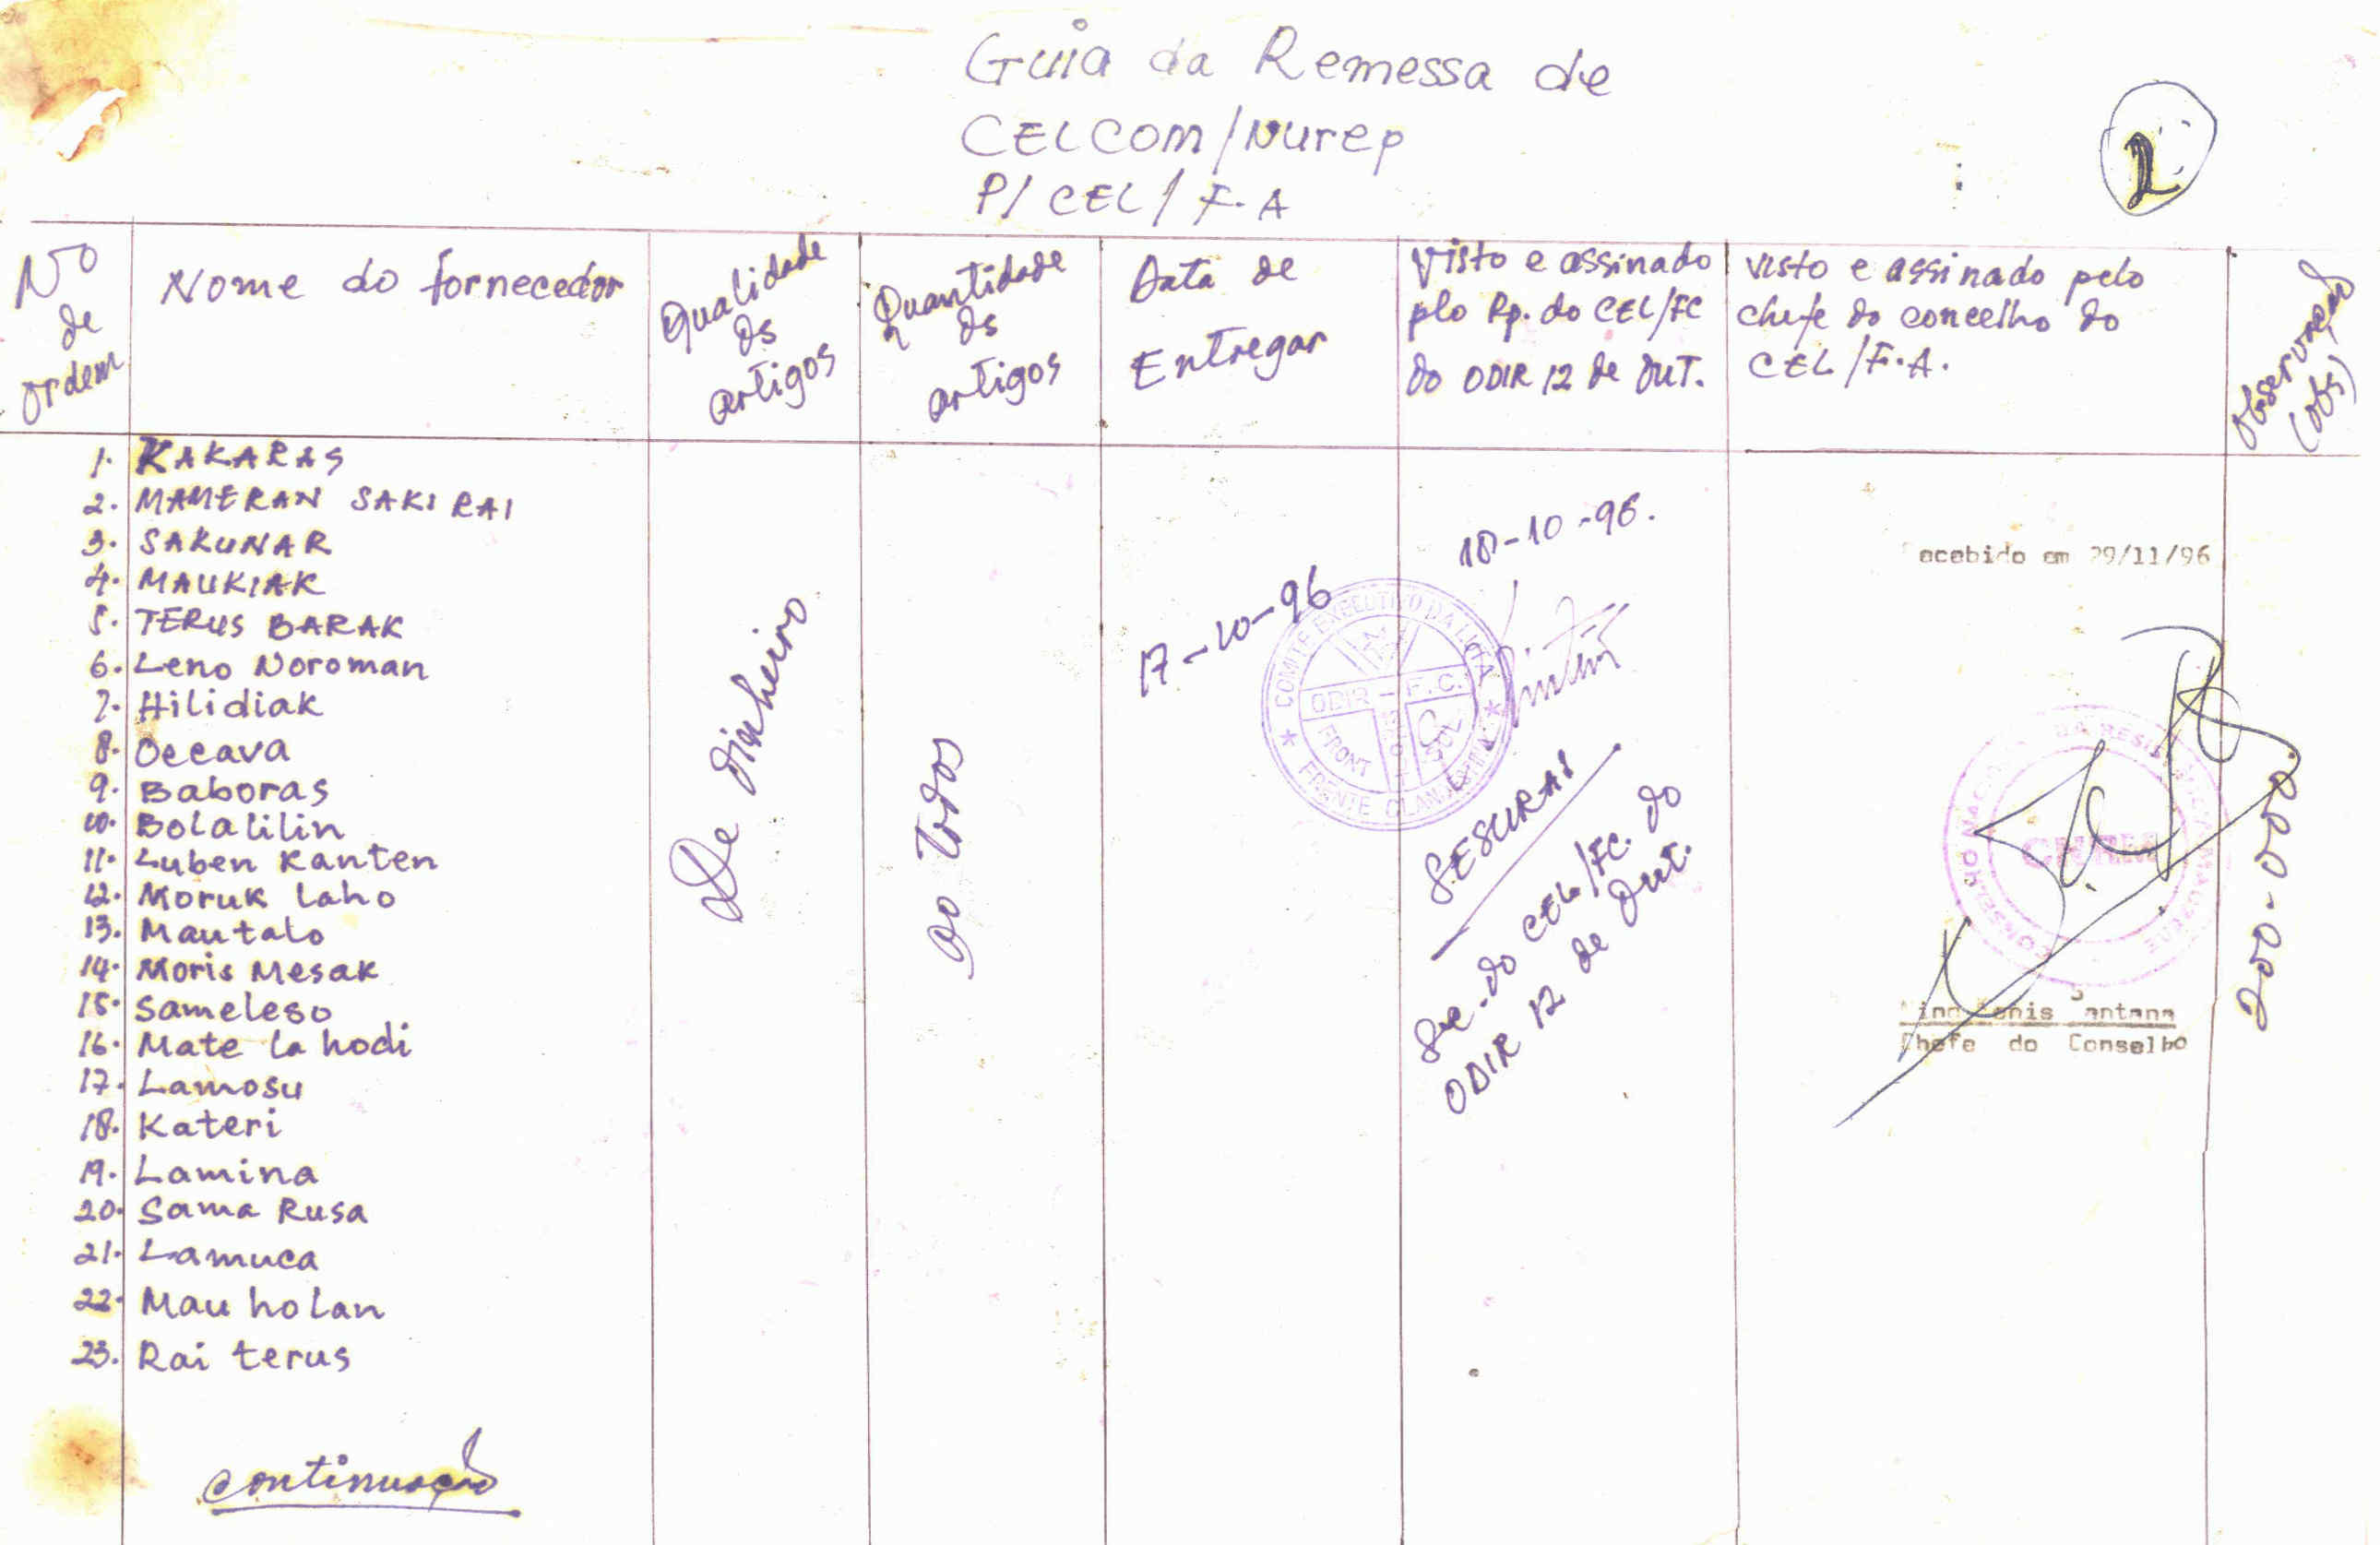 Guia da Remessa de
CELCOM/Nurep
P/ CEL / F.A
2
No de ordem
Nome do fornecedor
Qualidade ds artigos
Quantidade ds artigos
Data de Entregar
Visto e assinado
plo Rp. do CEL/FC
do ODIR 12 de OUT.
visto e assinado pelo
chefe do concelho do
CEL/F.A.
Observação
(obs)
1. KAKARAS
2. MAMERAN SAKI RAI
3. SAKUNAR
4. MAUKIAK
5. TERUS BARAK
6. Leno Noroman
7. Hilidiak
8. Oceava
9. Baboras
10. Bolalilin
11. Luben Kanten
12. Moruk laho
13. Mautalo
14. Moris Mesak
15. Sameleso
16. Mate la hodi
17. Lamosu
18. Kateri
19. Lamina
20. Sama Rusa
21. Lamuca
22. Mau holan
23. Rai terus
continuação
De dinheiro
ao todos
17-10-96
18-10-96.
COMITE EXECUTIVO DA LUTA
FRENTE CLANDESTINA
ODIR - F.C.
FRONT
SESURAI
Se. do CEL/FC. do
ODIR 12 de Out.
ecebido em 29/11/96
CONSELHO NACIONAL DA RESISTENCIA MAUBERE
CNRM
Santana
Chefe do Conselho
200.000.